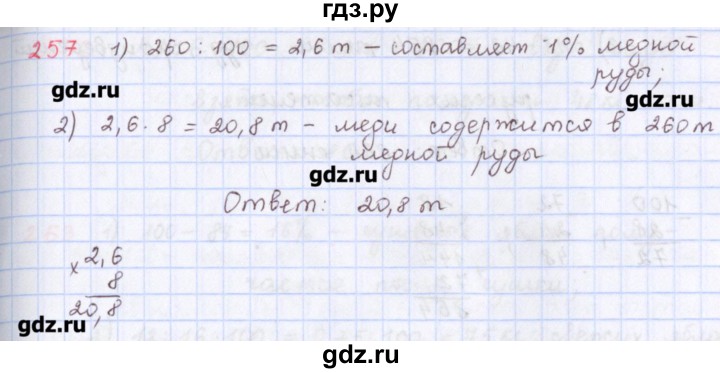 гдз.ру
257 1) 260 : 100 = 2,6 т – составляет 1% медной
руды;
gdz.ru
gdz.ru
2) 2,6 · 8 = 20,8 т – меди содержится в 260 т
медной руды
gdz.ru
Ответ: 20,8 т
× 2,6
8
20,8
gdz.ru
gdz.ru
gdz.ru